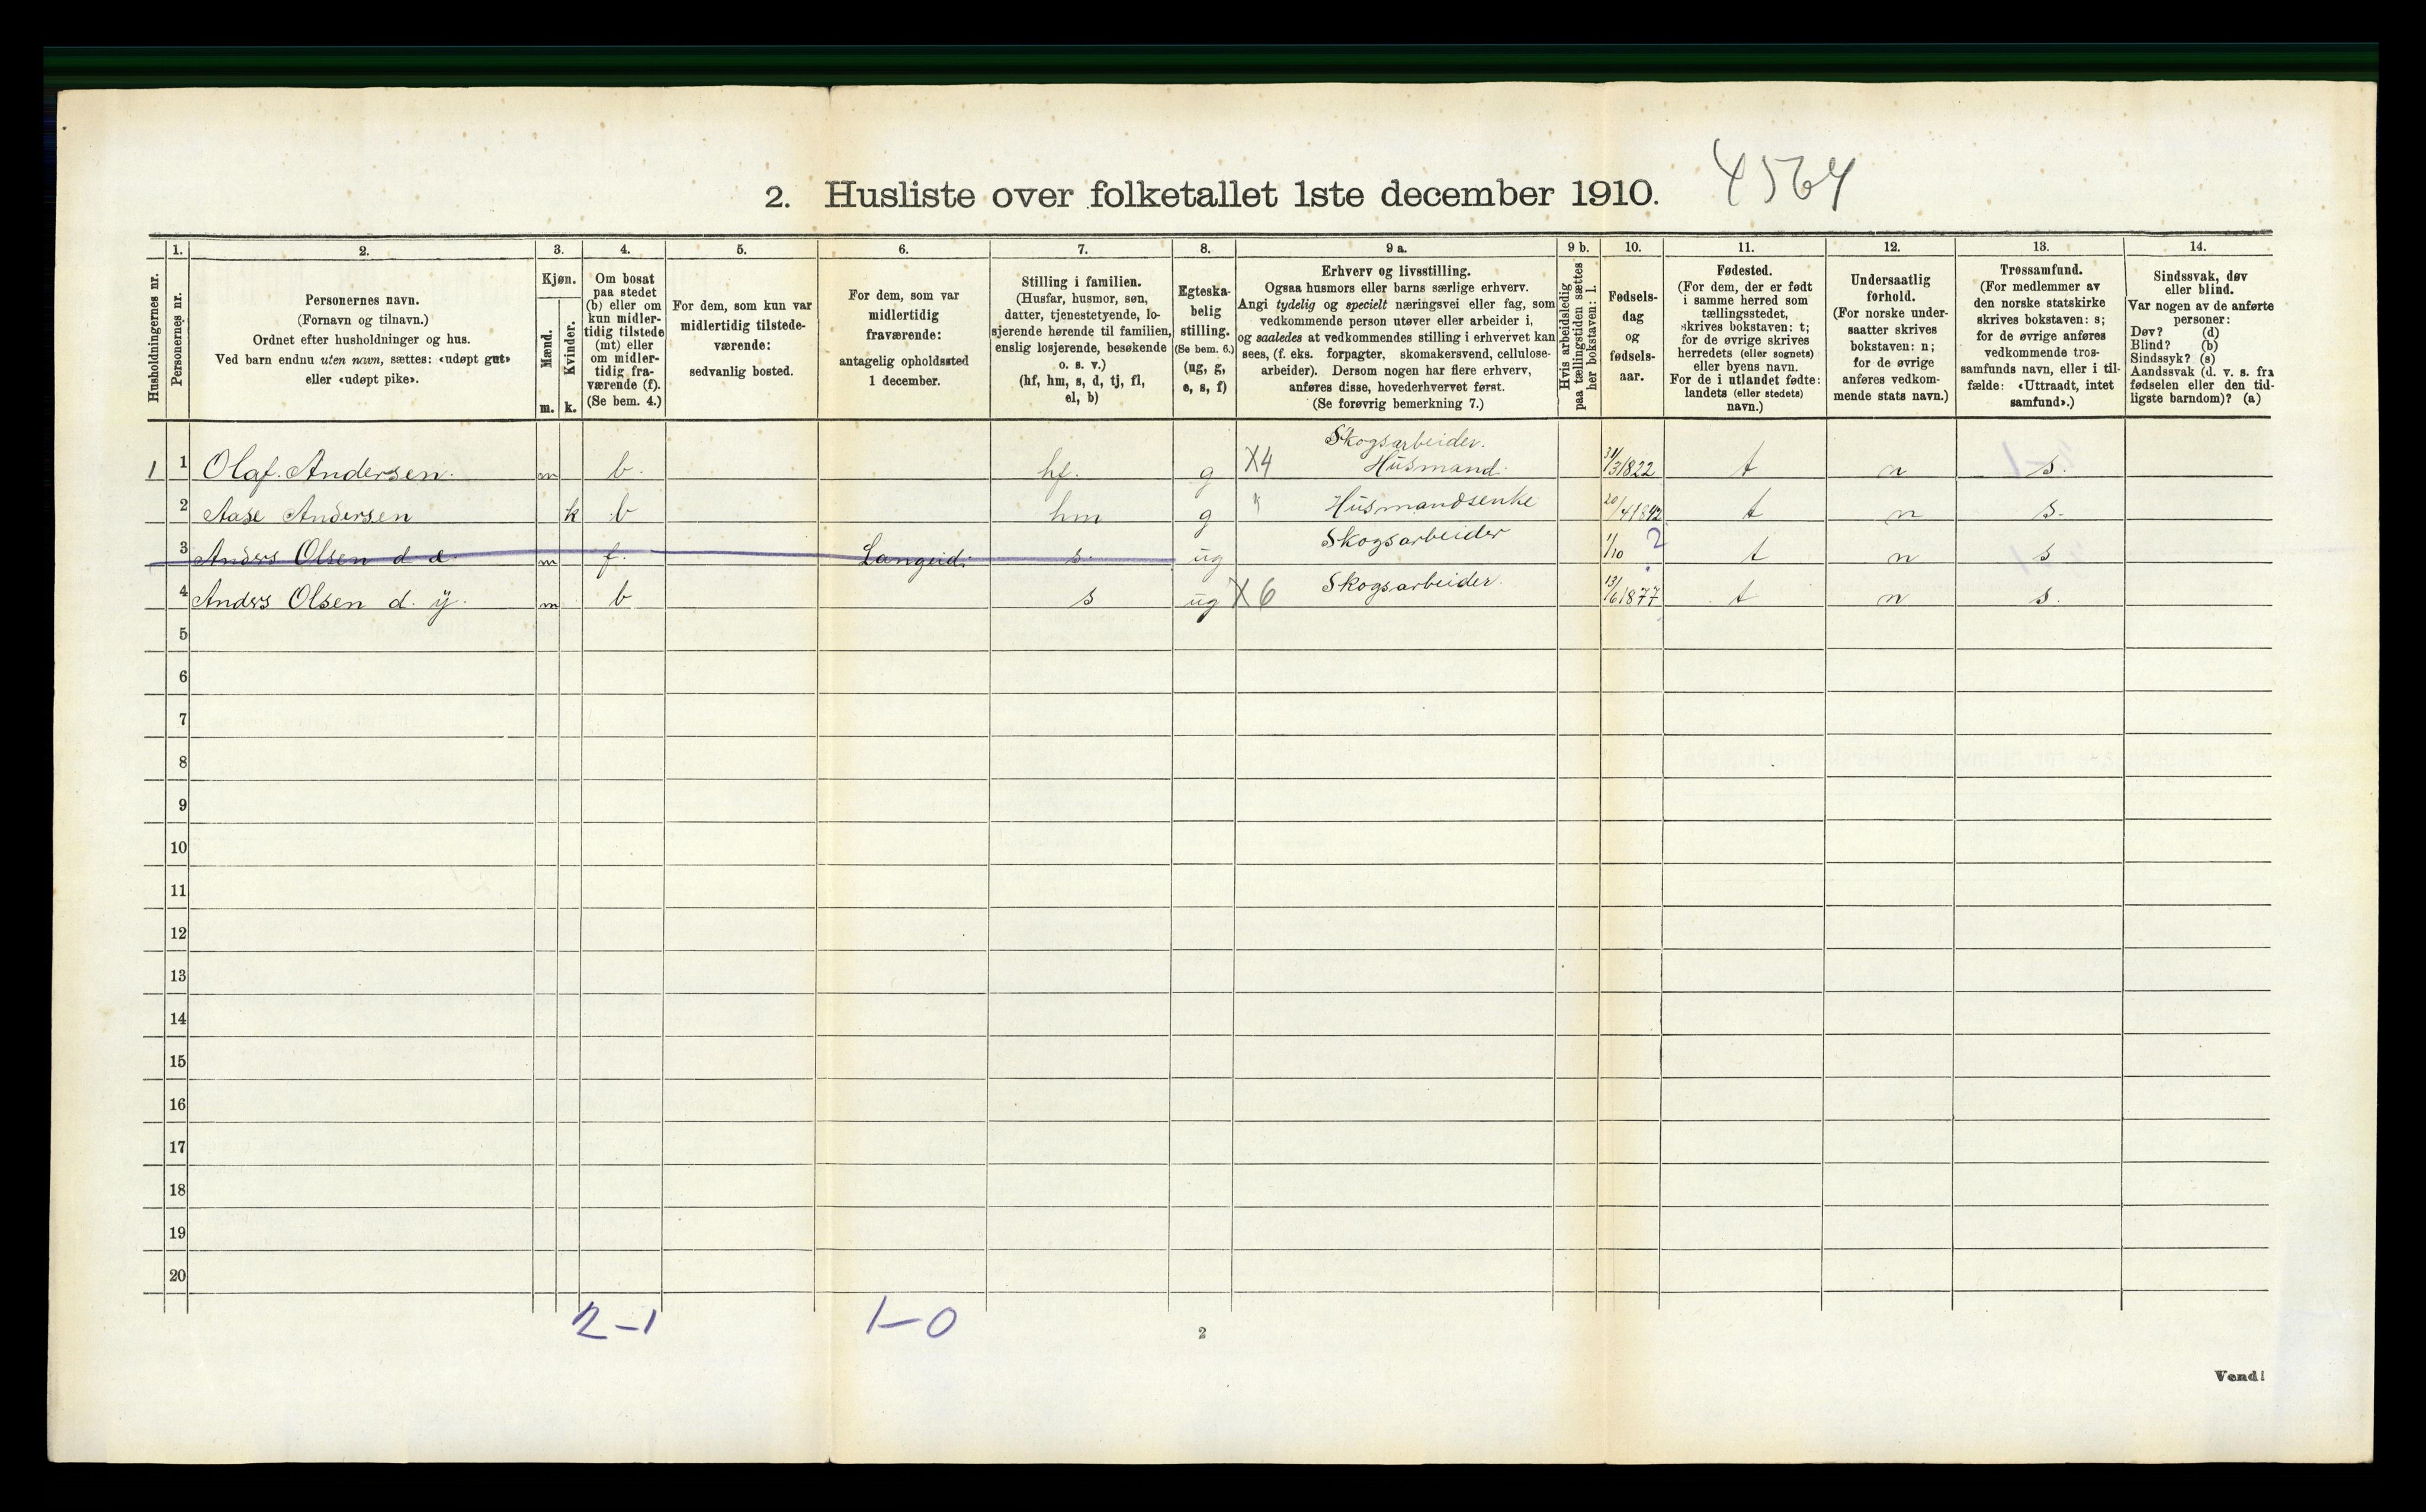 2. Husliste over folketallet 1ste december 1910. 4564
Husholdningernes nr.
1. Personernes nr.
2. Personernes navn.
(Fornavn og tilnavn.)
Ordnet efter husholdninger og hus.
Ved barn endnu uten navn, sættes: «udøpt gut»
eller «udøpt pike».
3. Kjøn.
Mænd. m.
Kvinder. k.
4. Om bosat
paa stedet
(b) eller om
kun midler-
tidig tilstede
(mt) eller
om midler-
tidig fra-
værende (f).
(Se bem. 4.)
5. For dem, som kun var
midlertidig tilstede-
værende:
sedvanlig bosted.
6. For dem, som var
midlertidig
fraværende:
antagelig opholdssted
1 december.
7. Stilling i familien.
(Husfar, husmor, søn,
datter, tjenestetyende, lo-
sjerende hørende til familien,
enslig losjerende, besøkende
o. s. v.)
(hf, hm, s, d, tj, fl,
el, b)
8. Egteska-
belig
stilling.
(Se bem. 6.)
(ug, g,
e, s, f)
9 a. Erhverv og livsstilling.
Ogsaa husmors eller barns særlige erhverv.
Angi tydelig og specielt næringsvei eller fag, som
vedkommende person utøver eller arbeider i,
og saaledes at vedkommendes stilling i erhvervet kan
sees, (f. eks. forpagter, skomakersvend, cellulose-
arbeider). Dersom nogen har flere erhverv,
anføres disse, hovederhvervet først.
(Se forøvrig bemerkning 7.)
9 b. Hvis arbeidsledig
paa tællingstiden sættes
her bokstaven: l.
10. Fødsels-
dag
og
fødsels-
aar.
11. Fødested.
(For dem, der er født
i samme herred som
tællingsstedet,
skrives bokstaven: t;
for de øvrige skrives
herredets (eller sognets)
eller byens navn.
For de i utlandet fødte:
landets (eller stedets)
navn.)
12. Undersaatlig
forhold.
(For norske under-
saatter skrives
bokstaven: n;
for de øvrige
anføres vedkom-
mende stats navn.)
13. Trossamfund.
(For medlemmer av
den norske statskirke
skrives bokstaven: s;
for de øvrige anføres
vedkommende tros-
samfunds navn, eller i til-
fælde: «Uttraadt, intet
samfund».)
14. Sindssvak, døv
eller blind.
Var nogen av de anførte
personer:
Døv? (d)
Blind? (b)
Sindssyk? (s)
Aandssvak (d. v. s. fra
fødselen eller den tid-
ligste barndom)? (a)
Skogsarbeider.
1 1 Olaf. Andersen. m b. hf. g X4 Husmand. 31/3 1822 t n s.
2 Aase Andersen k b hm g Husmandsenke 20/4 1842 t n s.
3 Anders Olsen d e. m f. Langeid. s. ug Skogsarbeider 1/10 2 t n s
4 Anders Olsen d. y. m b s ug X6 Skogsarbeider. 13/6 1877 t n s.
5
6
7
8
9
10
11
12
13
14
15
16
17
18
19
20
2-1 1-0
2
Vend!